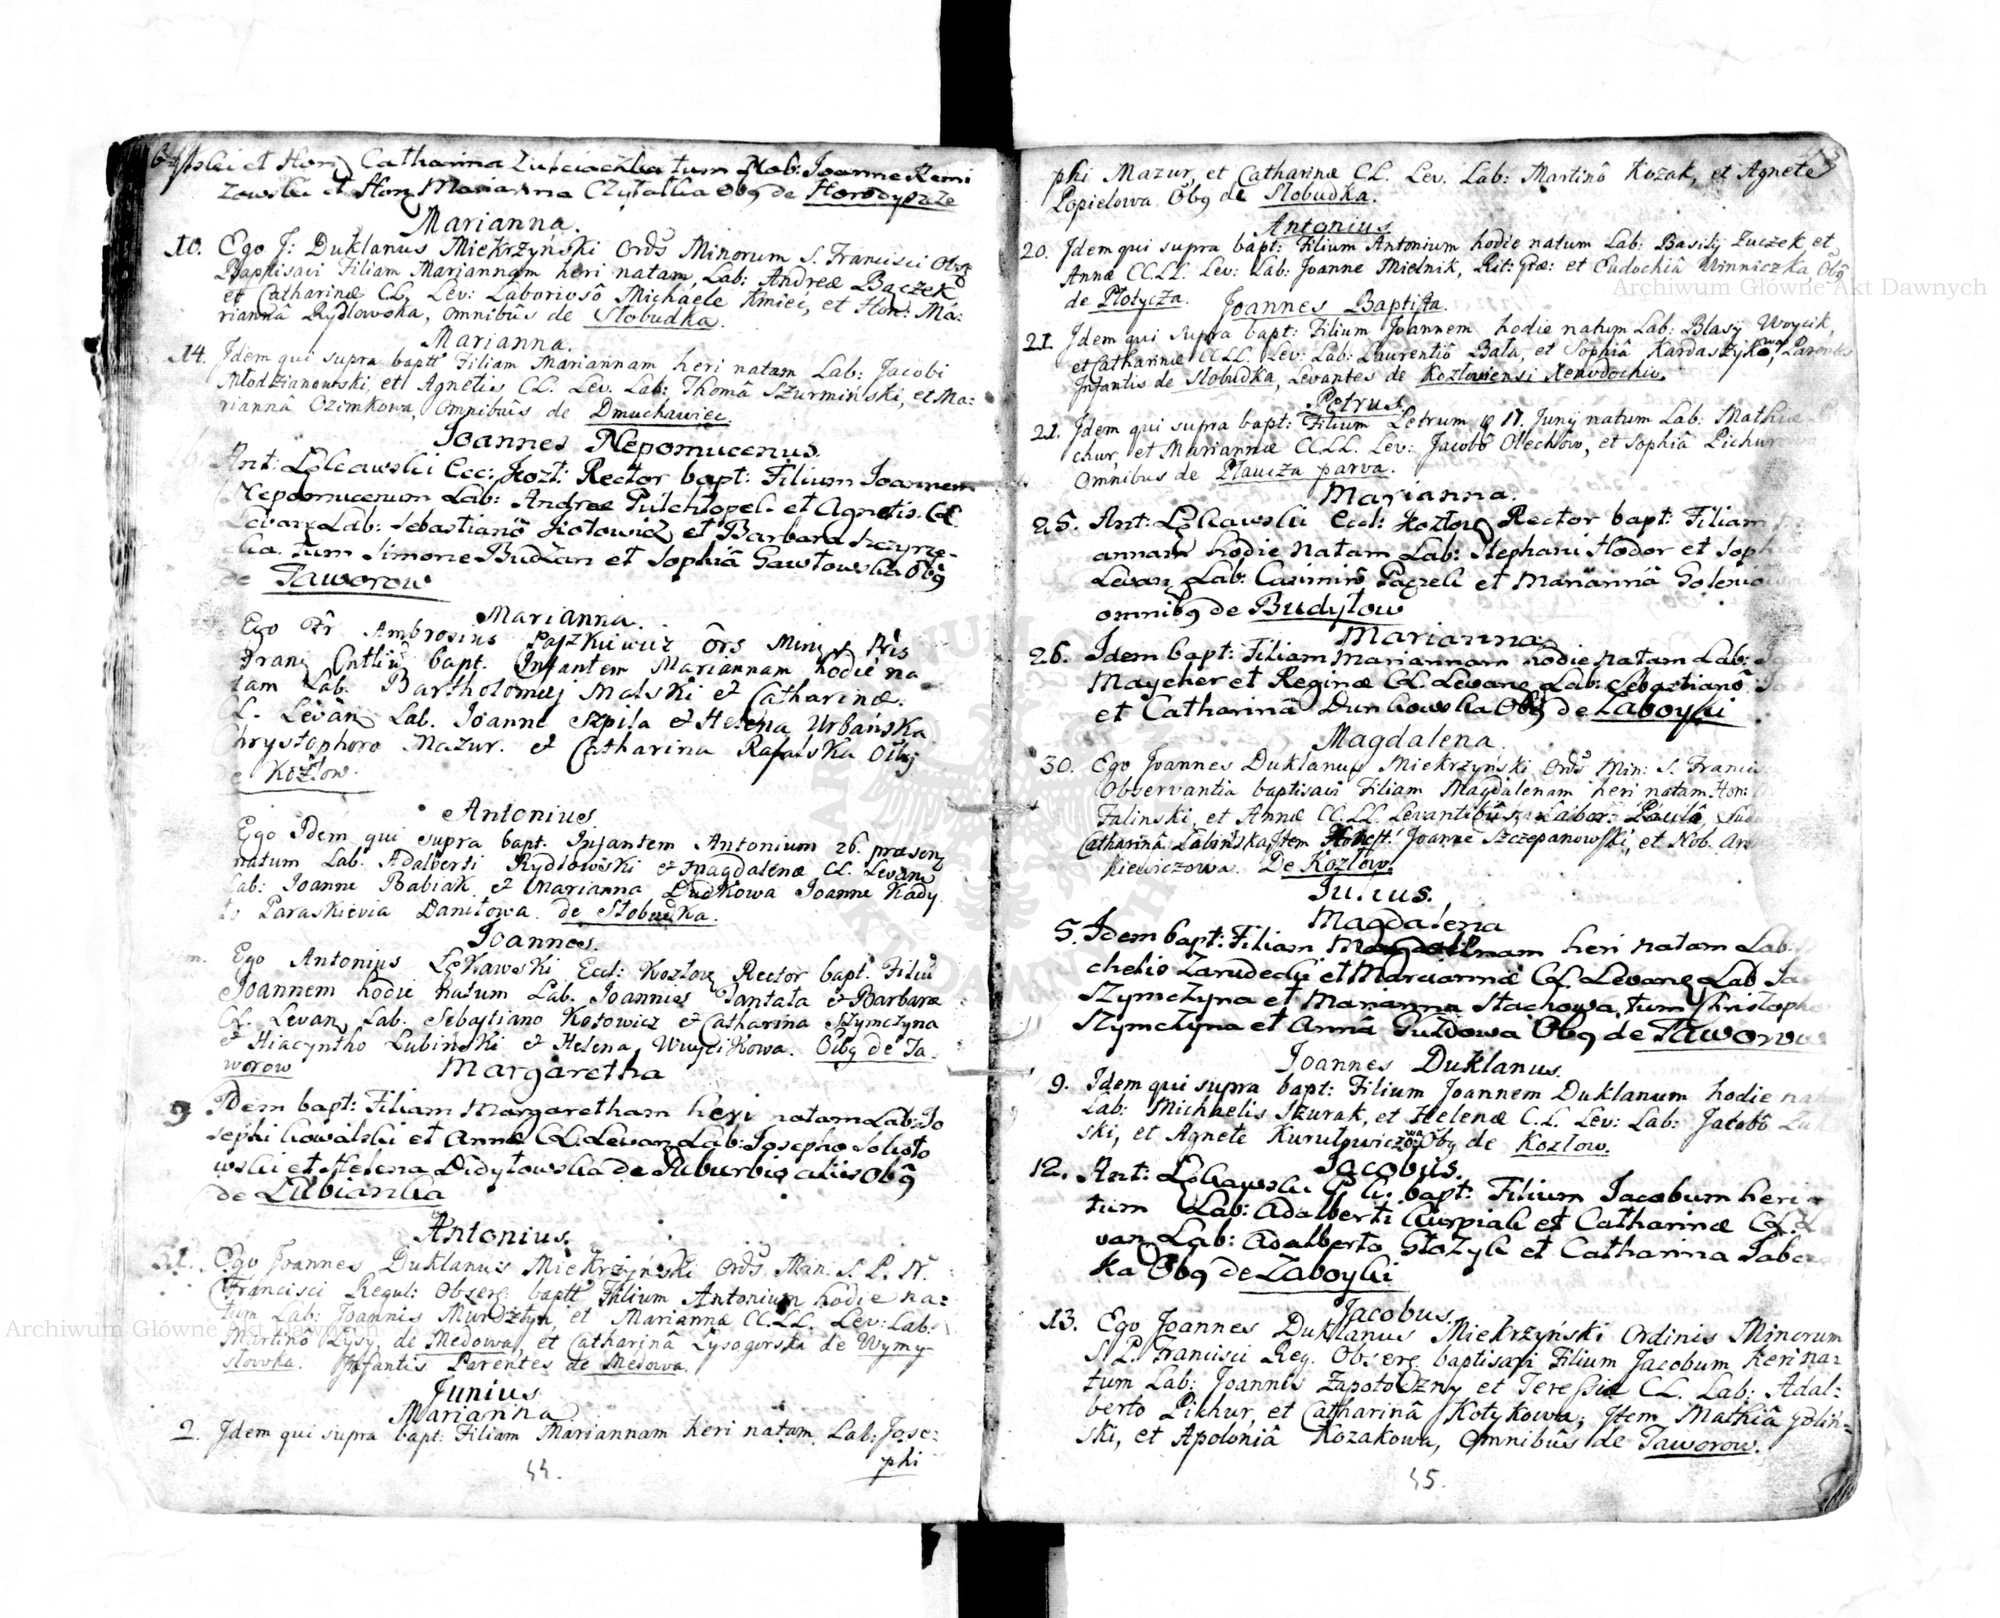 64
lski et Hon Catharina Lubciaczka tum Nob: Joanne Remi
zowski et Hon Marianna Czytalka Obg de Horodyszcze
Marianna.
10. Ego J: Duklanus Miekrzyński Ords Minorum S. Francisci Obs
Baptisavi Filiam Mariannam heri natam, Lab: Andreæ Bączek
et Catharinæ CL. Lev: Laboriosô Michaele Kmieć, et Hon: Ma:
riannâ Rydlowska, omnibus de Słobudka.
Marianna.
14. Idem qui supra bapt: Filiam Mariannam heri natam Lab: Jacobi
Młodzianowski, et Agnetis CL. Lev. Lab: Thomâ Szurmiński, et Ma:
riannâ Ozimkowa, Omnibus de Dmuchawiec.
Joannes Nepomucenus.
Ant: Łękawski Ecc: Kozł: Rector bapt: Filium Joannem
Nepomucenum Lab: Andreæ et Agnetis CL.
Levan Lab: Sebastianô Kotowicz et Barbara
tum Simone Budzan et Sophiâ Gawłowska Obg
de Taworow
Marianna.
Ego Fr Ambrosius Paszkiewicz Ors Min
Fran bapt. Infantem Mariannam hodie na
tam Lab. Bartholomæj Malski et Catharinæ
CL. Levan Lab. Joanne Szpila et Helena Urbańska
Chrystophoro Mazur. et Catharina Rafalska Obg
de Kozłow.
Antonius
Ego Idem qui supra bapt. Infantem Antonium 26. præsen
natum Lab. Adalberti Rydlowiski et Magdalenæ CL. Levan
Lab: Joanne Babiak et Marianna Dudkowa Joanne Kady
to Paraskievia Daniłowa. de Słobudka.
Joannes.
Ego Antonius Łękawski Eccl: Kozłow Rector bapt. Filiū
Joannem hodie natum Lab. Joannis Pantała et Barbaræ
CL. Levan Lab. Sebastiano Kotowicz et Catharina Szymczyna
et Hiacyntho Lubiński et Helena Wuycikowa. Obg de Ta
worow
Margaretha
9 Idem bapt: Filiam Margaretham heri natam Lab: Jo
sephi Kowalski et Annæ CL. Levan Lab: Josepho Sokoło
wski et Helena Didyłowska de Suburbio aliis Obg
de Lubianka
Antonius.
31. Ego Joannes Duklanus Miekrzyński Ords Min. S. P. N.
Francisci Regul: Observ: bapt: Filium Antonium hodie na:
tum Lab: Joannis Murdztyn, et Mariannæ CC.LL. Lev: Lab:
Martinô Łysy de Medowa, et Catharinâ Łysogorska de Wymy-
słowka. Infantis Parentes de Medowa.
Junius
Marianna
2. Idem qui supra bapt: Filiam Mariannam heri natam Lab: Jose:
phi
44.
phi Mazur, et Catharinæ CL. Lev. Lab: Martinô Kozak, et Agnete
Popielowa Obg de Słobudka.
Antonius
20. Idem qui supra bapt: Filium Antonium hodie natum Lab: Basilÿ Zuczek et
Annæ CC.LL. Lev: Lab: Joanne Mielnik, Rit: Græ: et Eudochiâ Winniczka Obg
de Płotycza. Joannes Baptista.
21. Idem qui supra bapt: Filium Joannem hodie natum Lab: Blasÿ Woycik,
et Catharinæ CC.LL. Lev: Lab: Laurentiô Bała, et Sophiâ Kardaszykowa, Parentes
Infantis de Słobudka, Levantes de Kozłoviensi Xenodochio.
Petrus
21. Idem qui supra bapt: Filium Petrum 17. Junÿ natum Lab: Mathiæ
chur, et Mariannæ CC.LL. Lev: Jacobô Olechow, et Sophiâ Pichurowa
Omnibus de Płaucza parva.
Marianna.
25. Ant: Łękawski Eccl: Kozłow Rector bapt: Filiam
annam hodie natam Lab: Stephani Hodor et Soph
Levan Lab: Casimirô Paczek et Mariannâ
omnibg de Budyłow
Marianna
26. Idem bapt: Filiam Mariannam hodie natam Lab:
Maycher et Reginæ CL. Levan Lab: Sebastianô
et Catharinâ Dunkowska Obg de Zaboyki
Magdalena.
30. Ego Joannes Duklanus Miekrzyński Ords Min: S. Franci
Observantia baptisavi Filiam Magdalenam heri natam Hon:
Falinski, et Annæ CC.LL. Levantibus Labor: Paulô
Catharinâ Labińska, Item Honest: Joanne Szczepanowski, et Nob. An
kiewiczowa. De Kozłow.
Julius.
Magdalena
5. Idem bapt: Filiam Magdalenam heri natam Lab:
chelis Zarudecki et Mariannæ CL. Levan Lab
Szymczyna et Marianna Stachowa, tum Christopho
Szymczyna et Annâ Guzdowa Obg de Taworow
Joannes Duklanus.
9. Idem qui supra bapt: Filium Joannem Duklanum hodie na
Lab: Michaelis Skurak, et Helenæ C.L. Lev: Lab: Jacobô
ski, et Agnete Obg de Kozłow.
Jacobus.
12. Ant: Łękawski bapt: Filium Jacobum heri
tum Lab: Adalberti Kurpiak et Catharinæ CL.
van Lab: Adalberto Głozyk et Catharina
ka Obg de Zaboyki
Jacobus.
13. Ego Joannes Duklanus Miekrzyński Ordinis Minorum
S. P. Francisci Reg. Observ: baptisavi Filium Jacobum heri na:
tum Lab: Joannis Zapotoczny et Teressiæ CL. Lab: Adal:
berto Pichur, et Catharinâ Kotykowa; Item Mathiâ
ski, et Apoloniâ Kozakowa, Omnibus de Taworow.
45.
Archiwum Główne Akt Dawnych
Archiwum Główne Akt Dawnych
ARCHIWUM GŁÓWNE AKT DAWNYCH